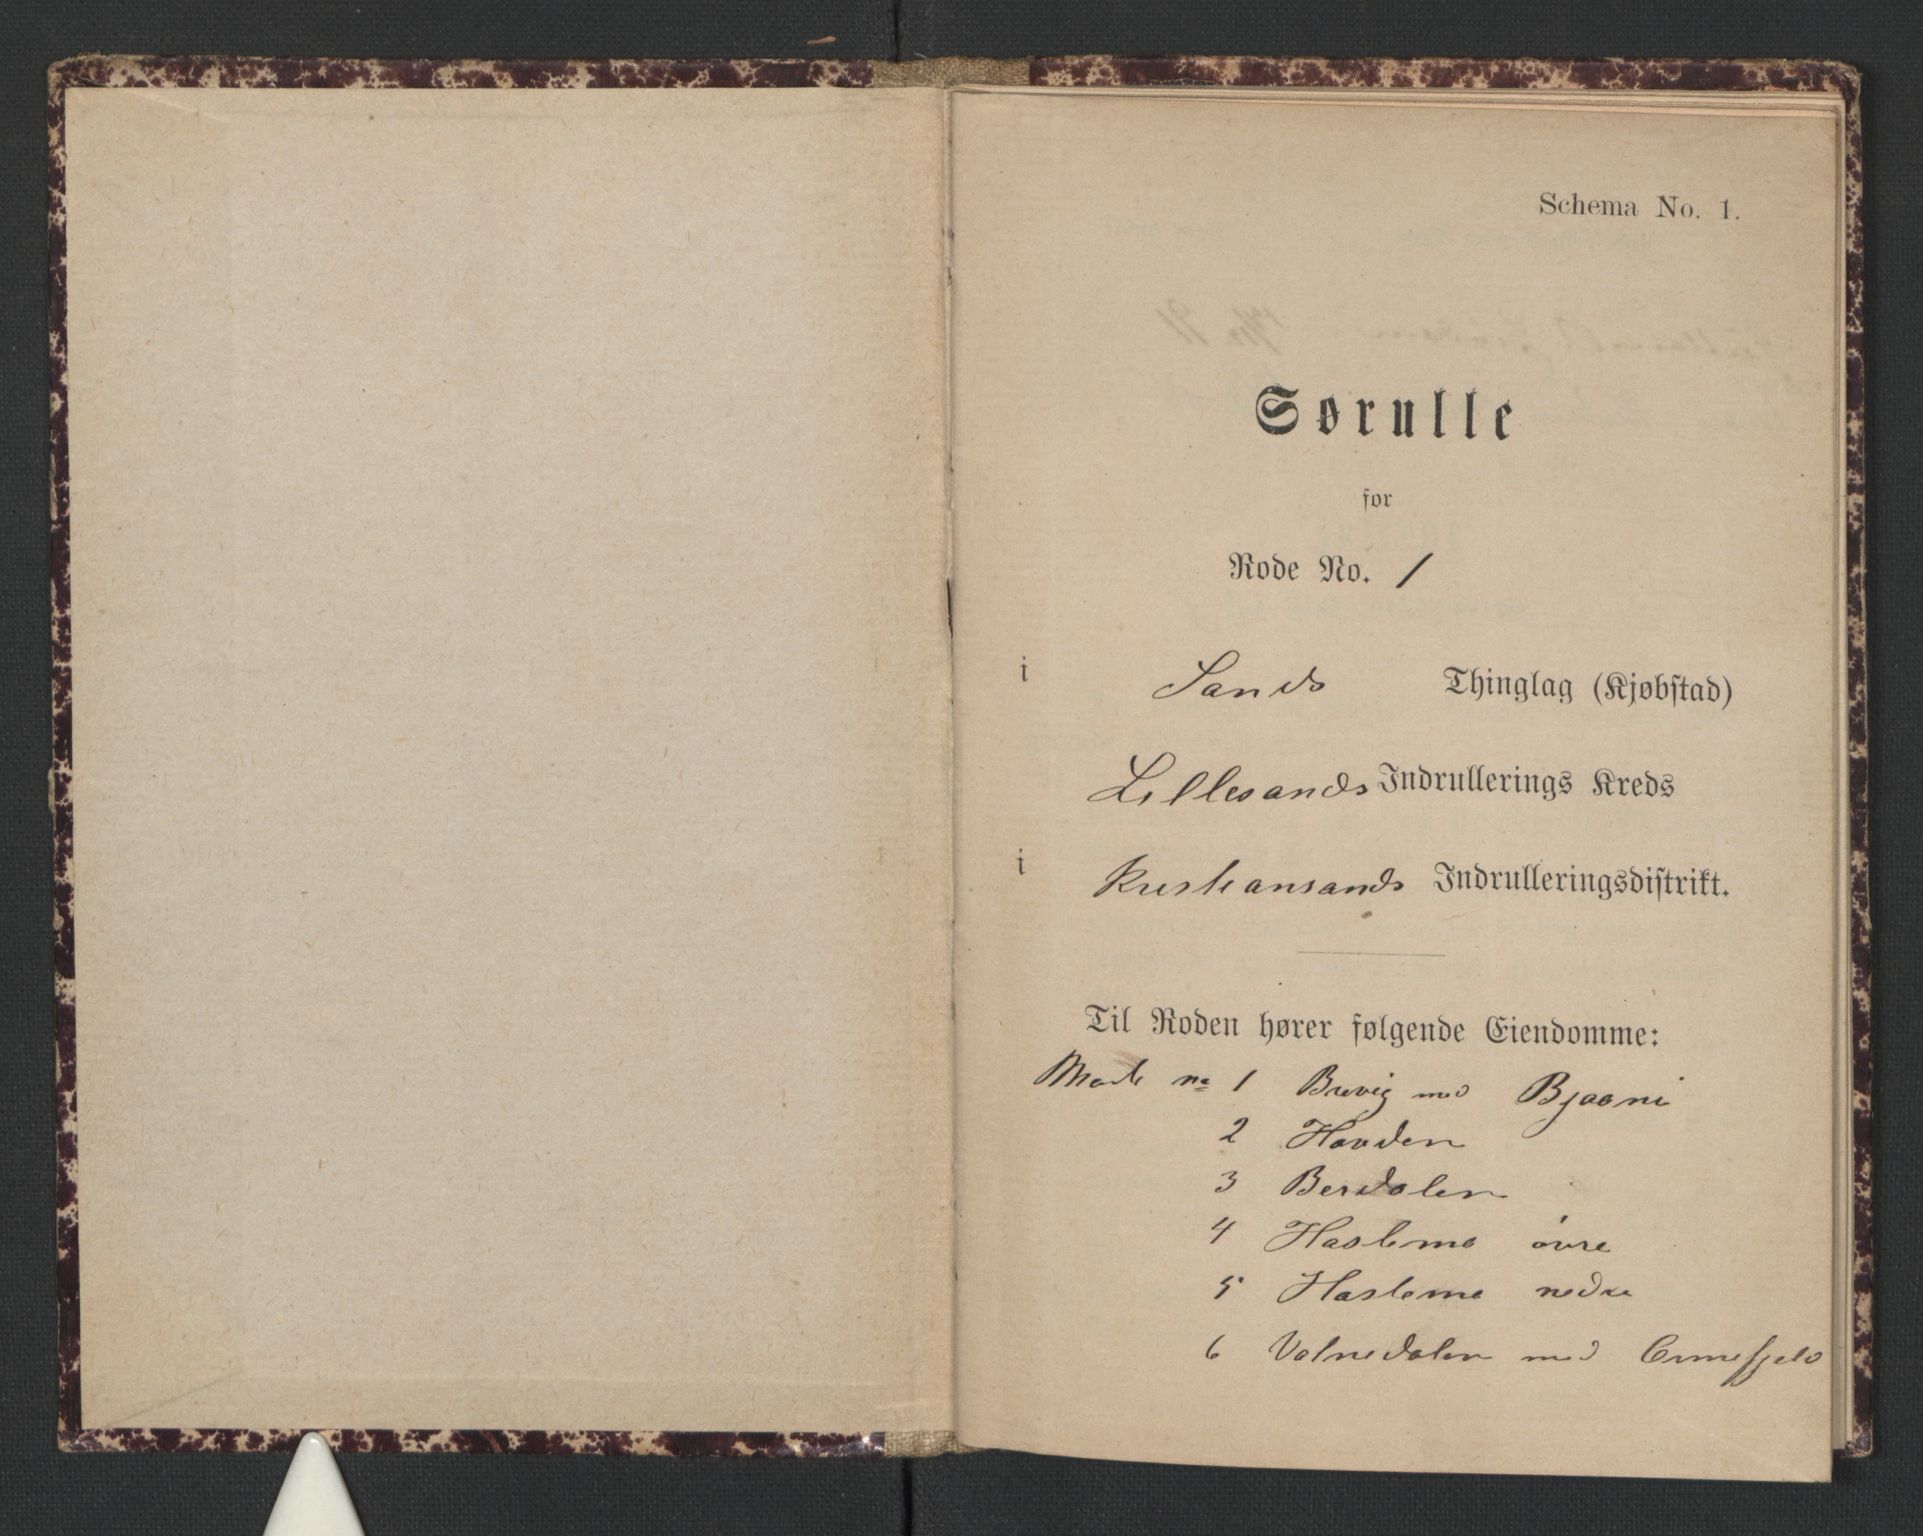 Schema No. 1.
Sørulle
for
Rode No. 1
i Sands Thinglag (Kjøbstad)
Lillesands Indrullerings Kreds
i Kristiansands Indrulleringsdistrikt.
Til Roden hører følgende Eiendomme:
No 1 Brevig med Bjaani
2 Hovden
3 Berdalen
4 Haslemo övre
5 Haslemo nedre
6 Valnedalen med